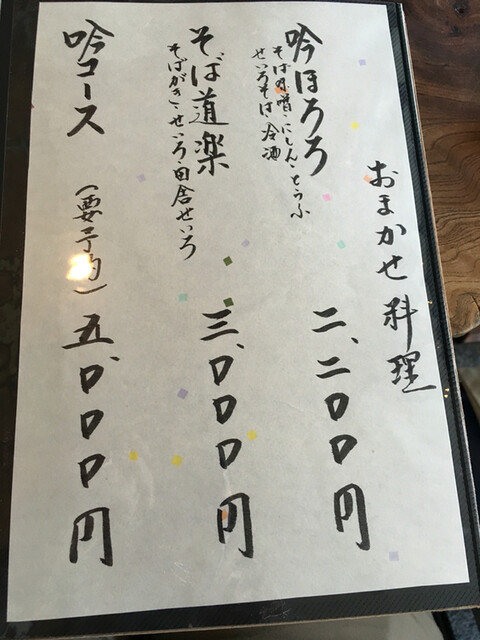 おまかせ料理
吟ほろろ
そば味噌・にしん・とうふ
せいろそば・冷酒
二、二〇〇円
そば道楽
そばがき・せいろ・田舎せいろ
三、〇〇〇円
吟コース
（要予約）五、〇〇〇円